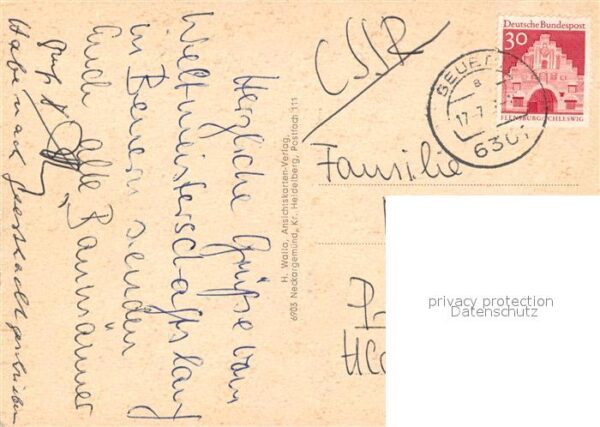 Herzliche Grüße vom
Weltmeisterschaftslauf
in Beuern senden
Euch alle
Gruß
Habe nach
geschrieben
H. Walla, Ansichtskarten-Verlag,
6903 Neckargemünd, Kr. Heidelberg, Postfach 111
CSSR
Deutsche Bundespost
30
FLENSBURG/SCHLESWIG
BEUE
a
17-7
6301
Familie
privacy protection
Datenschutz